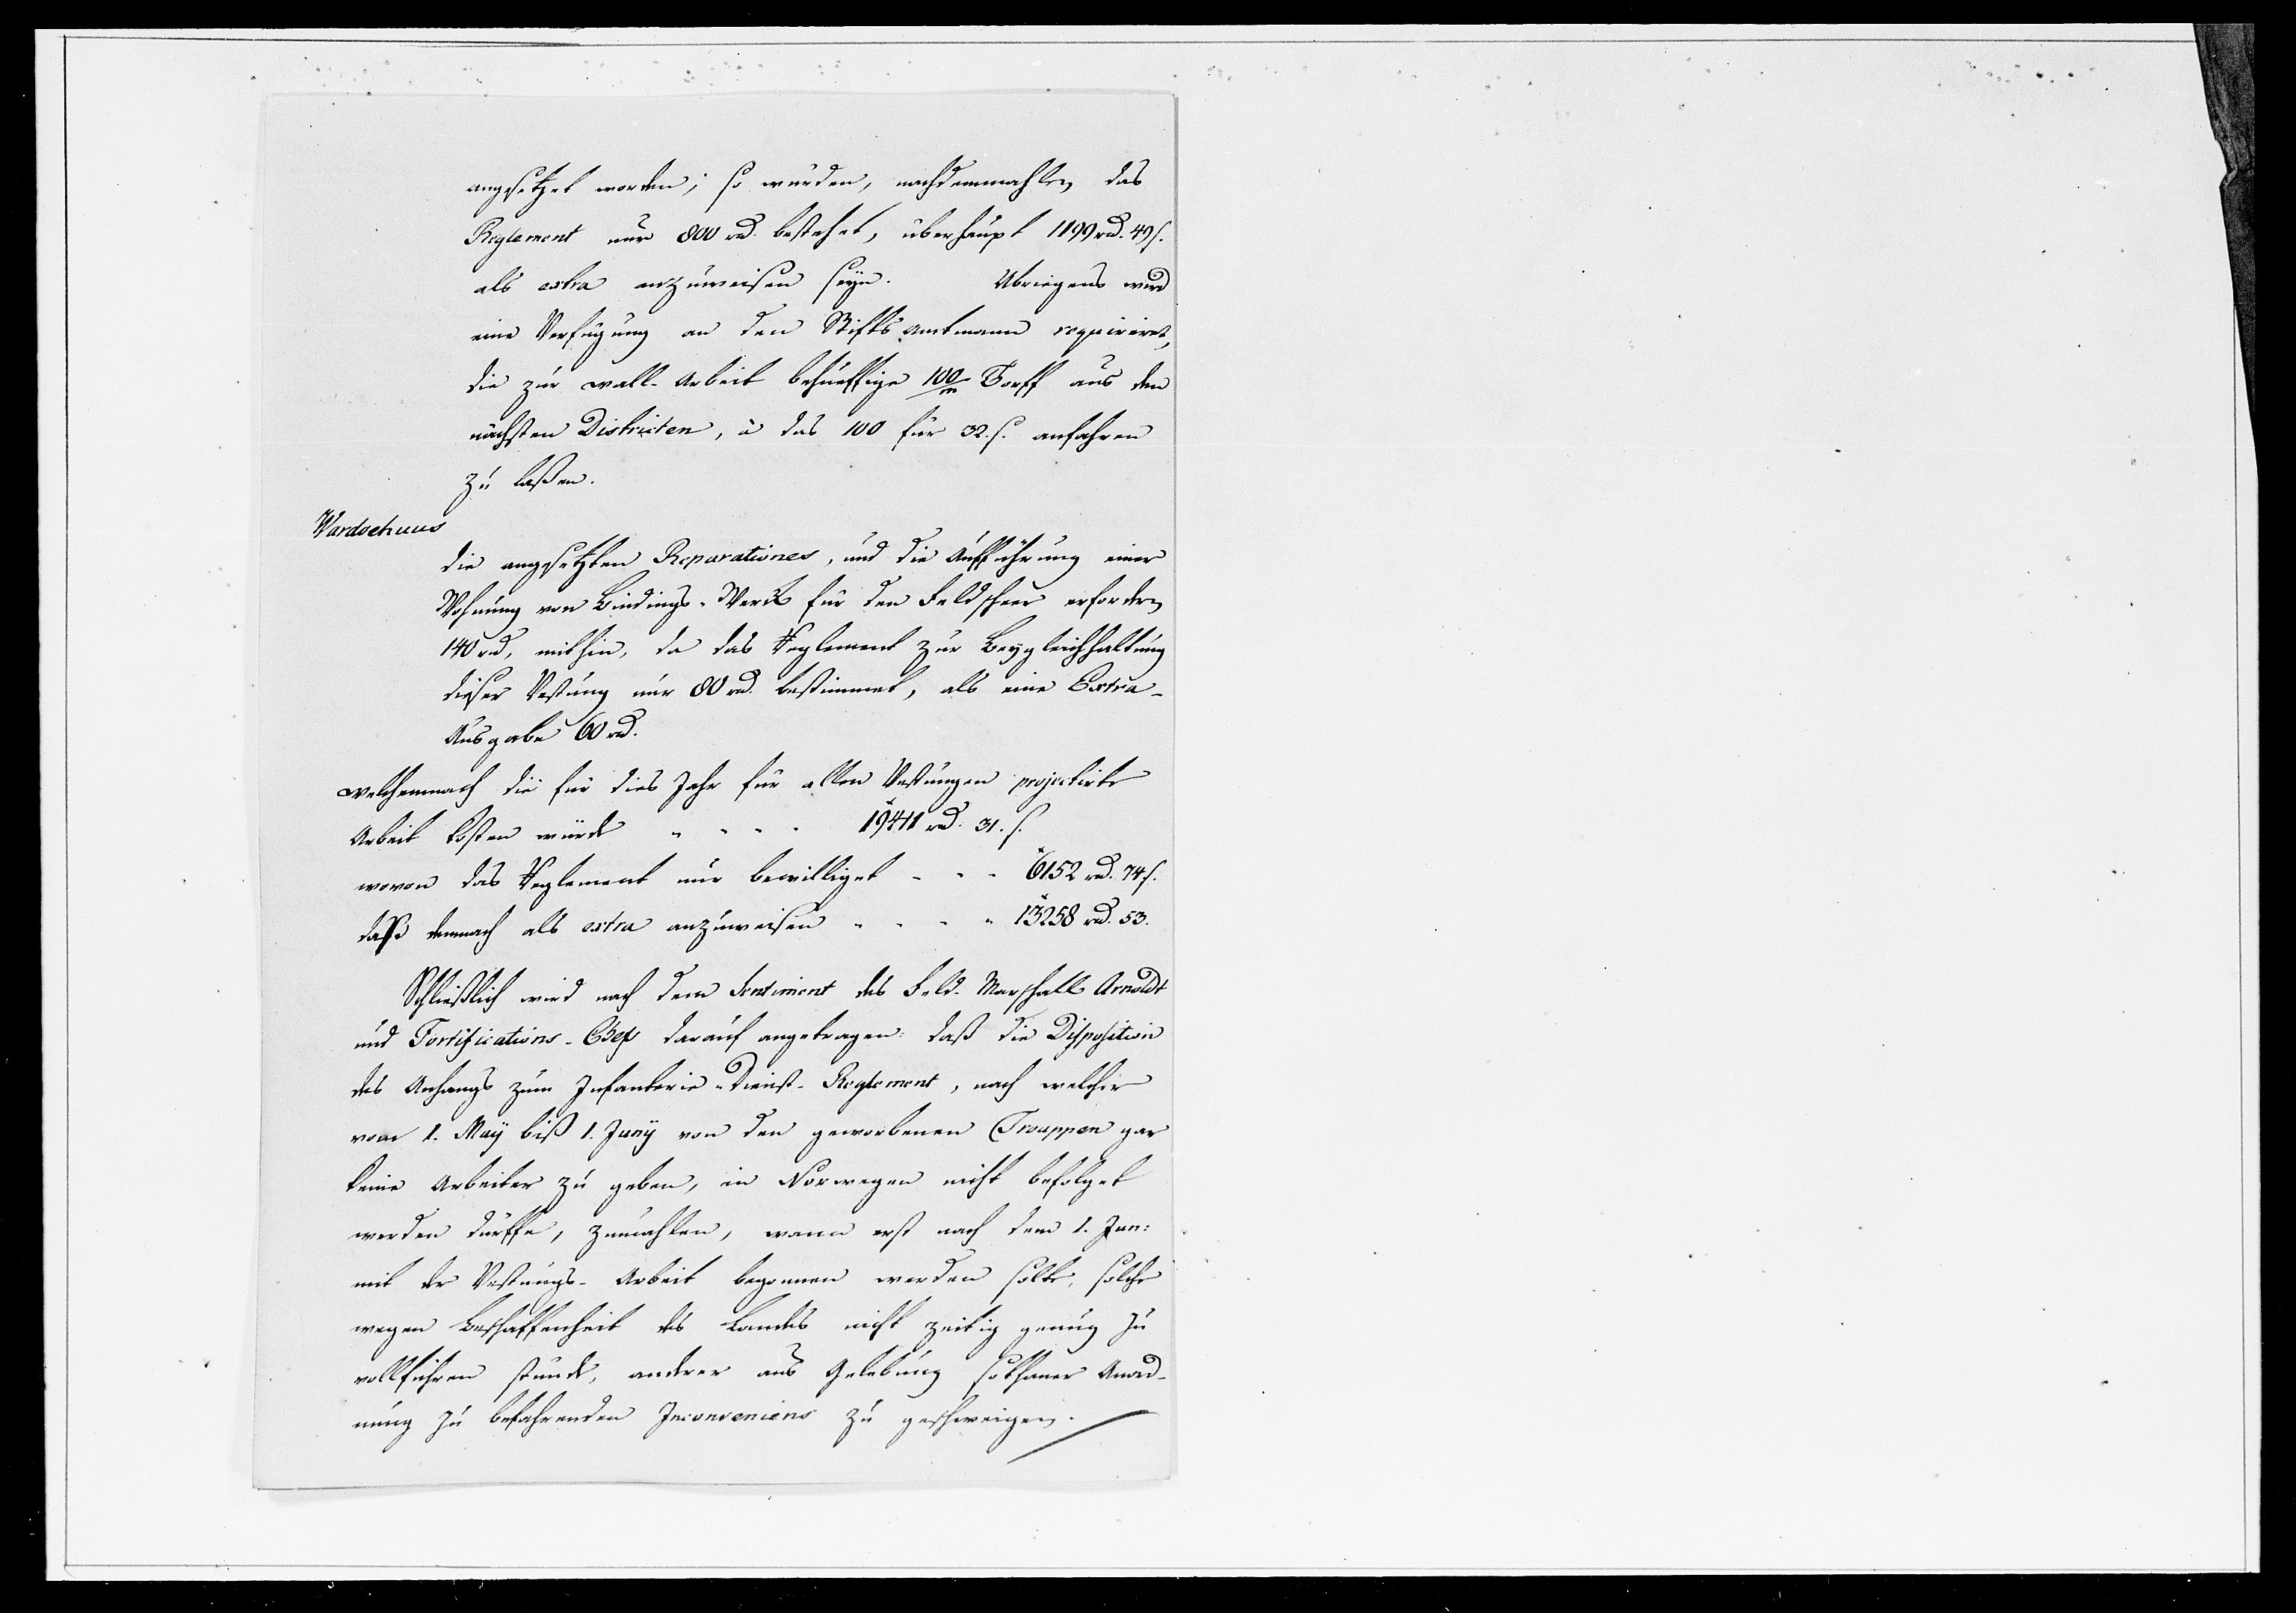 angesetzet worden; so würden, nachdemmahlen das
Reglement nur 800 rd. bestehet, überhaupt 1199 rd. 49 s.
als extra anzuweisen seÿn. Übriegens wird
eine Verfügung an den Stifts Amtmann requiriret,
die zur Wall-Arbeit behueffige 100/m Torff aus den
nächsten Districten, à das 100 für 32. s. anfahren
zu laßen.
Wardoehuus
die angesetzten Reparationes, und die Aufführung einer
Wohnung von Bindings-Werck für den Feldscheer erfordern
140 rd, mithin, da das Reglement zur Beygleichhaltung
dieser Vestung nur 80 rd. bestimmet, als eine Extra-
Ausgabe 60 rd.
welchemnach die für dies Jahr für allen Vestungen projectirte
Arbeit kosten würde " - - - 19411 rd. 31. s.
wovon das Reglement nur bewilliget - - - 6152 rd. 74 s.
daß demnach als extra anzuweisen - - - - 13258 rd. 53.
Schließlich wird nach dem Sentiment des Feld-Marschall Arnoldt
und Fortifications-Chef darauf angetragen: daß die Disposition
des Anhangs zum Infanterie-Dienst-Reglement, nach welcher
vom 1. Maÿ biß 1. Junÿ von den geworbenen Trouppen gar
keine Arbeiter zu geben, in Norwegen nicht befolget
werden dürffe, zumahlen, wann erst nach dem 1. Jun:
mit der Vestungs-Arbeit begonnen werden solte, solche
wegen Beschaffenheit des Landes nicht zeitig genug zu
vollführen stünde, anderer aus Gelebung sothaner Anord-
nung zu befahrenden Inconveniens zu geschweigen.